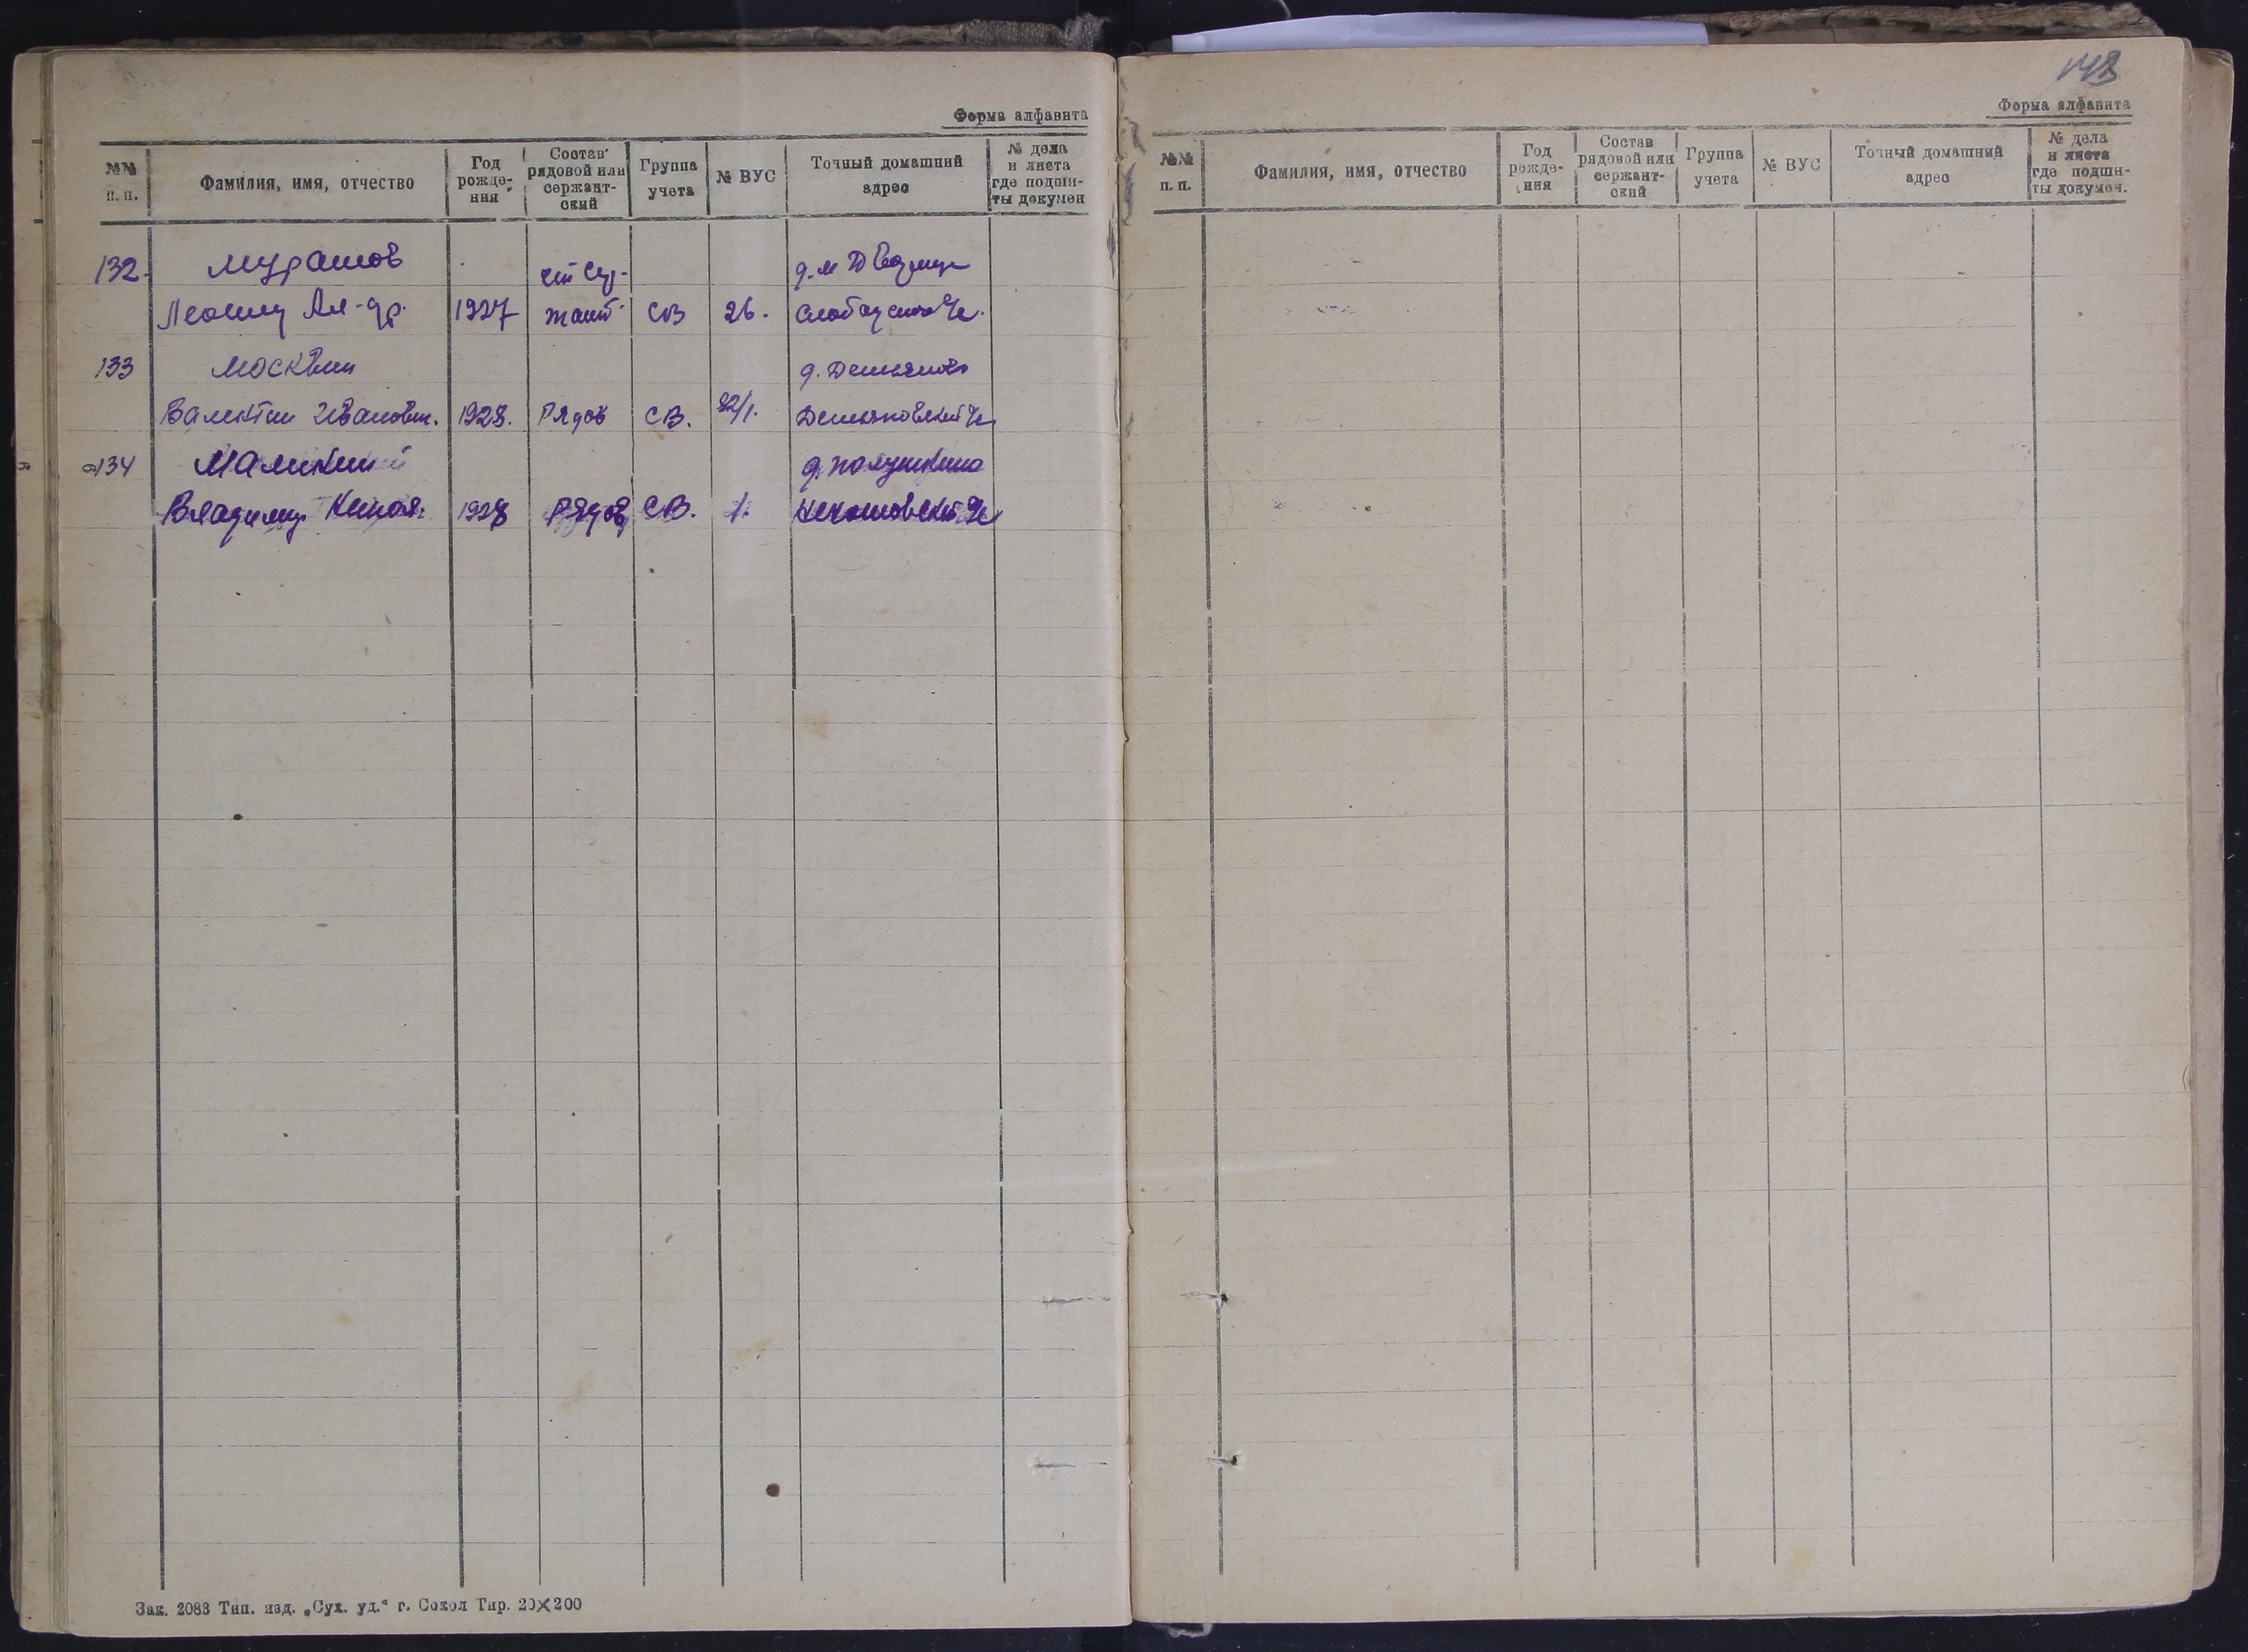 Форма алфавита
№№ п. п. Фамилия, имя, отчество Год рожде- ния Состав рядовой или сержант- ский Группа учета № ВУС Точный домашний адрес № дела и листа где подши- ты докумен
132. Мурашов ст. сер-
Ал-др. 1927 жант СВ 26.
133 Москвин
Валентин Иванович. 1928. Рядов СВ. д. Демьяново
134 д. Полушкино
Владимир 1928 Рядов СВ. 1.
Зак. 2083 Тип. изд. „Сух. уд.“ г. Сокол Тир. 20×200
148
Форма алфавита
№№ п. п. Фамилия, имя, отчество Год рожде- ния Состав рядовой или сержант- ский Группа учета № ВУС Точный домашний адрес № дела и листа где подши- ты докумен.